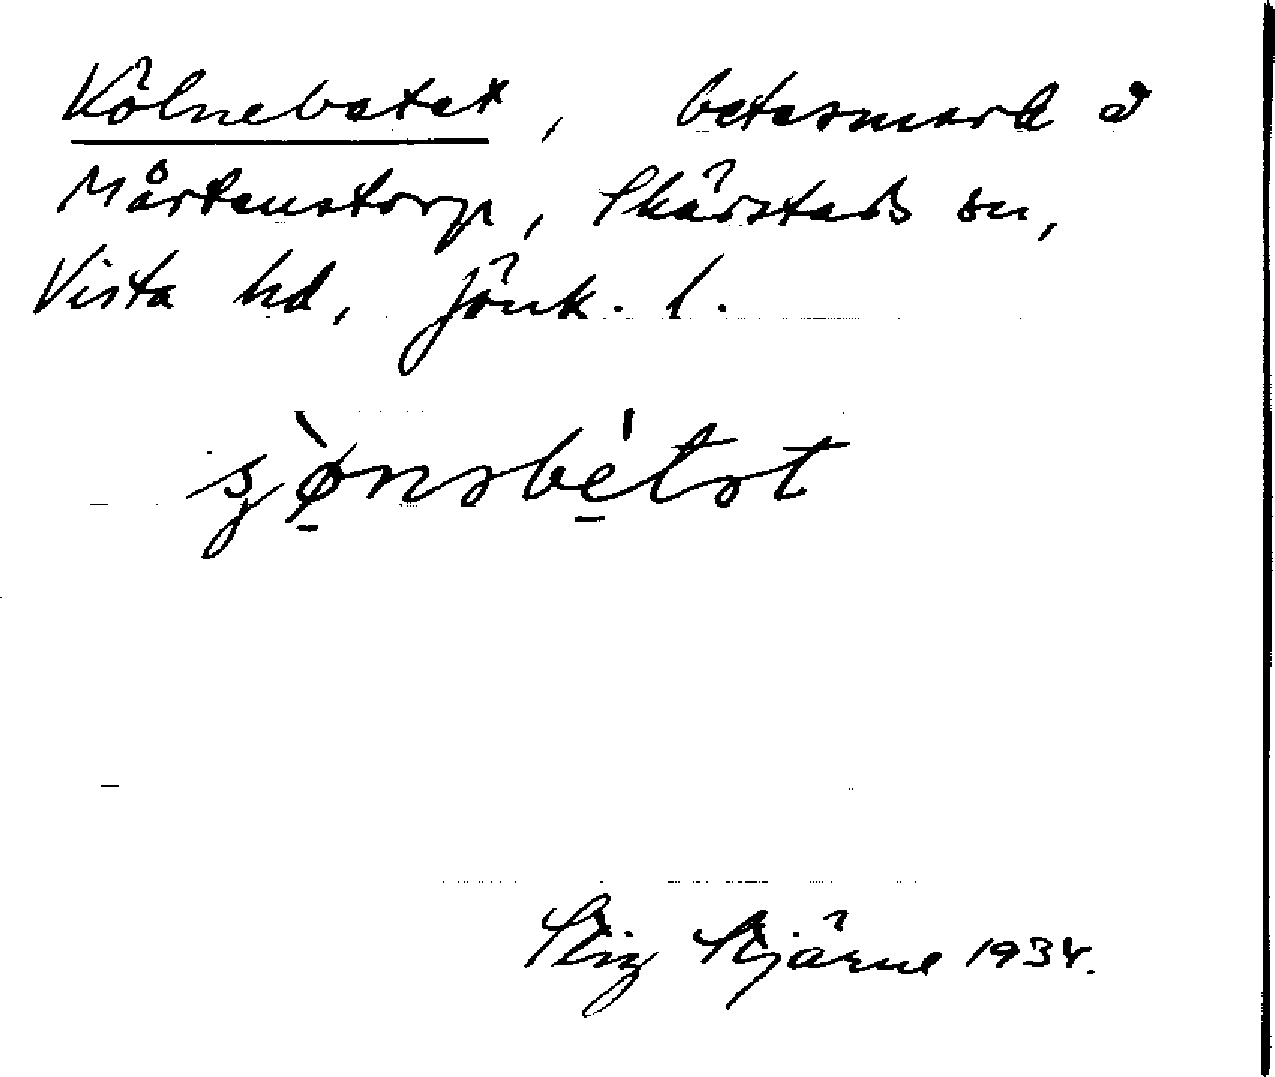 Kölnebetet, betesmark å
Mårtenstorp, Skärstads sn,
Vista hd, Jönk. l.
Stig Stjärne 1934.